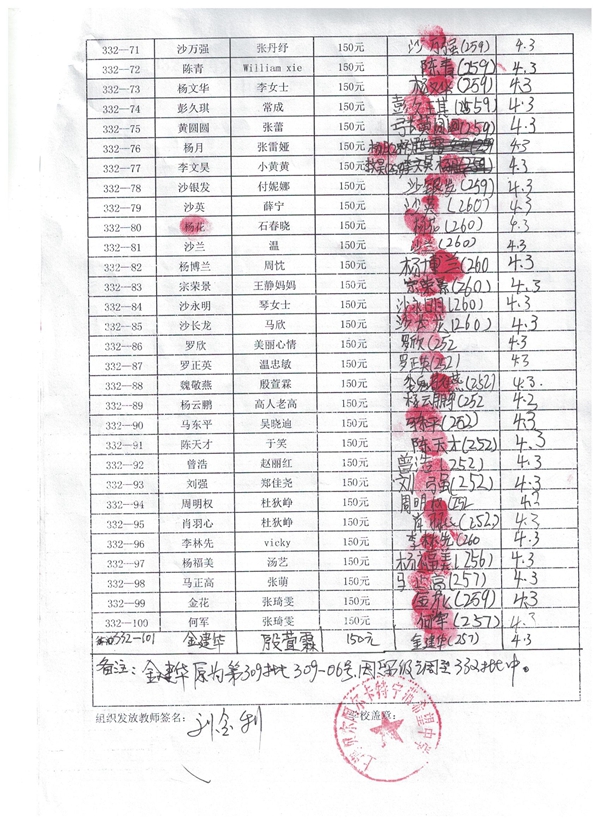 332—71 沙万强 张丹纾 150元 沙万强(259) 4.3
332—72 陈青 William xie 150元 陈青(259) 4.3
332—73 杨文华 李女士 150元 杨文华(259) 4.3
332—74 彭久琪 常成 150元 彭久琪(259) 4.3
332—75 黄圆圆 张蕾 150元 (259) 4.3
332—76 杨月 张雷娅 150元 4.3
332—77 李文昊 小黄黄 150元 4.3
332—78 沙银发 付妮娜 150元 沙银发(259) 4.3
332—79 沙英 薛宁 150元 沙英(260) 4.3
332—80 杨花 石春晓 150元 杨花(260) 4.3
332—81 沙兰 温 150元 沙兰(260) 4.3
332—82 杨博兰 周忱 150元 杨博兰(260 4.3
332—83 宗荣景 王静妈妈 150元 宗荣景(260) 4.3
332—84 沙永明 琴女士 150元 沙永明(260) 4.3
332—85 沙长龙 马欣 150元 沙长龙(260) 4.3
332—86 罗欣 美丽心情 150元 罗欣(252 4.3
332—87 罗正英 温忠敏 150元 罗正英(252) 4.3
332—88 魏敬燕 殷萱霖 150元 (252) 4.3
332—89 杨云鹏 高人老高 150元 杨云鹏(252 4.3
332—90 马东平 吴晓迪 150元 (252) 4.3
332—91 陈天才 于笑 150元 陈天才(252) 4.3
332—92 曾浩 赵丽红 150元 曾浩(252) 4.3
332—93 刘强 郑佳尧 150元 刘强(252) 4.3
332—94 周明权 杜狄峥 150元 周明权(252 4.3
332—95 肖羽心 杜狄峥 150元 (252) 4.3
332—96 李林先 vicky 150元 李林先(260 4.3
332—97 杨福美 汤艺 150元 杨福美(256) 4.3
332—98 马正高 张萌 150元 马正高(257) 4.3
332—99 金花 张琦雯 150元 金花(259) 4.3
332—100 何军 张琦雯 150元 何军(257) 4.3
332-101 金建华 殷萱霖 150元 金建华(257) 4.3
备注：金建华原为第309批309-06号,因留级调至332批中。
组织发放教师签名： 学校盖章：